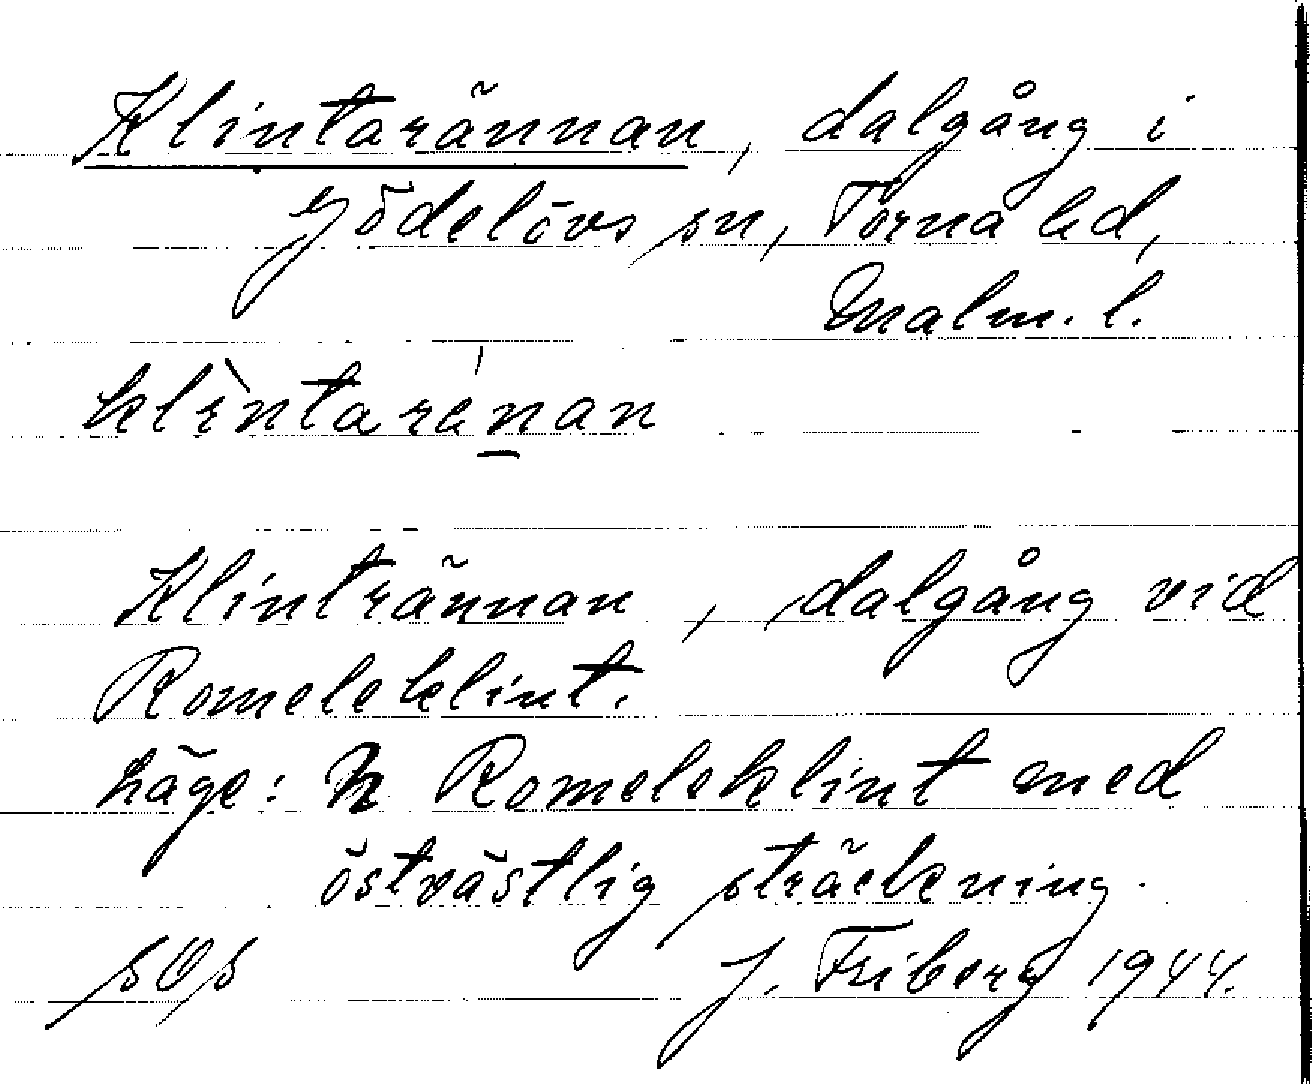 Klintarännan, dalgång i
Gödelövs sn, Torna hd,
Malm. l.
Klintrännan, dalgång vid
Romeleklint.
Läge: N Romeleklint med
östvästlig sträckning.
J. Friberg 1944.